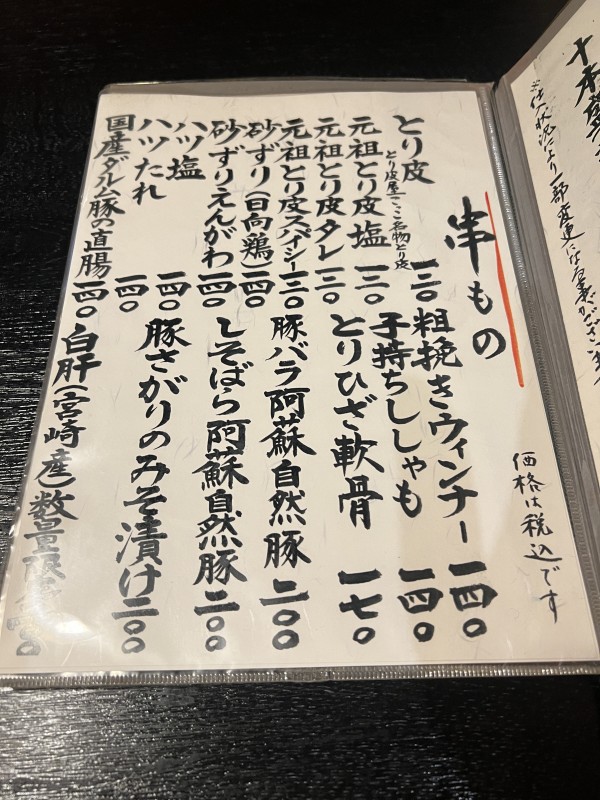 十本盛
※仕入状況により一部変更になる事がございます
串もの
価格は税込です
とり皮 一三〇
元祖とり皮塩 一三〇
元祖とり皮タレ 一三〇
元祖とり皮スパイシー 一三〇
砂ずり(日向鶏) 一四〇
砂ずりえんがわ 一四〇
ハツ塩 一四〇
ハツたれ 一四〇
国産ダルム豚の直腸 一四〇
粗挽きウィンナー 一四〇
子持ちししゃも 一四〇
とりひざ軟骨 一七〇
豚バラ阿蘇自然豚 二〇〇
しそばら阿蘇自然豚 二〇〇
豚さがりのみそ漬け 二〇〇
白肝(宮崎産)数量限定